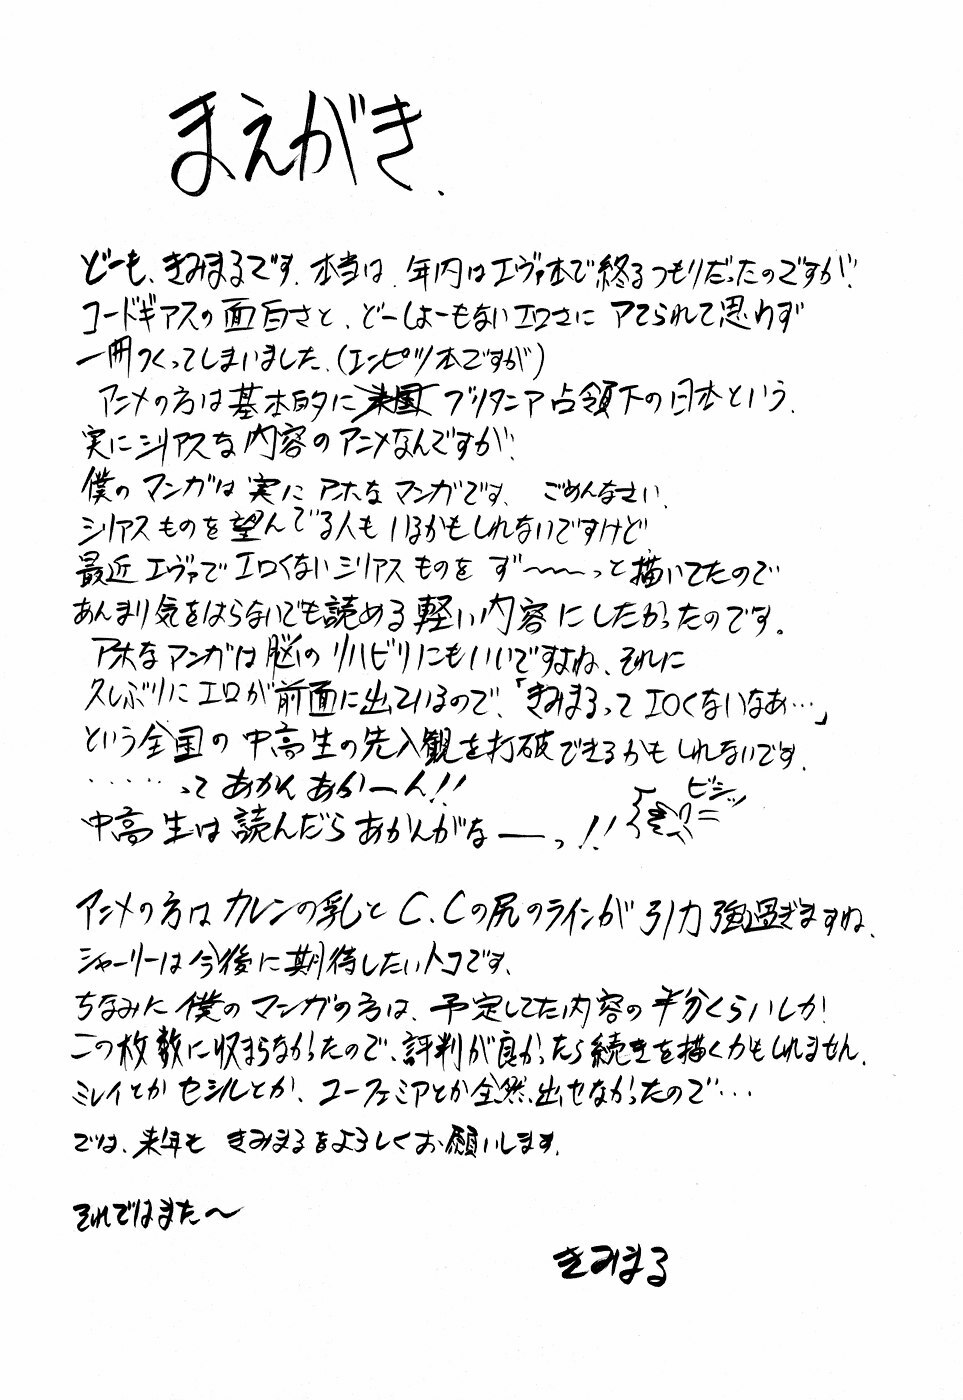 まえがき、
どーも、きみまるです。本当は、年内はエヴァ本で終るつもりだったのですが、
コードギアスの面白さと、どーしよーもないエロさに アてられて思わず
一冊つくってしまいました。(エンピツ本ですが)
アニメの方は基本的に 米国 ブリタニア占領下の日本という、
実にシリアスな内容のアニメなんですが、
僕のマンガは実にアホなマンガです、ごめんなさい、
シリアスものを望んでる人もいるかもしれないですけど
最近エヴァでエロくないシリアスものを ず〜〜〜っと描いてたので
あんまり気をはらないでも読める軽い内容にしたかったのです。
アホなマンガは脳のリハビリにもいいですよね、それに
久しぶりにエロが前面に出ているので、「きみまるってエロくないなあ…」
という全国の中高生の先入観を打破できるかもしれないです、
・・・・・ってあかんあかーん!!
中高生は読んだらあかんがなーっ!!
ビシッ
アニメの方はカレンの乳とC.Cの尻のラインが引力強過ぎますね、
シャーリーは今後に期待したいトコです、
ちなみに僕のマンガの方は、予定してた内容の半分くらいしか
この枚数に収まらなかったので、評判が良かったら続きを描くかもしれません、
ミレイとかセシルとか、ユーフェミアとか全然出せなかったので…
では、来年もきみまるをよろしくお願いします、
それではまた〜
きみまる